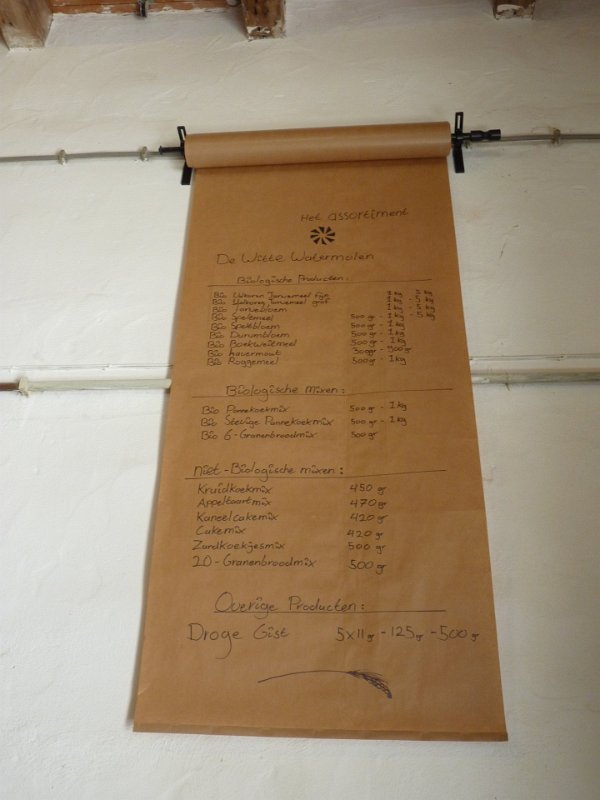 Het assortiment
De Witte Watermolen
Biologische Producten:
Bio Volkoren Tarwemeel fijn 1 kg - 5 kg
Bio Volkoren Tarwemeel grof 1 kg - 5 kg
Bio Tarwebloem 1 kg - 5 kg
Bio Speltmeel 500 gr - 1 kg - 5 kg
Bio Speltbloem 500 gr - 1 kg
Bio Durumbloem 500 gr - 1 kg
Bio Boekweitmeel 500 gr - 1 kg
Bio havermout 500 gr
Bio Roggemeel 500 gr - 1 kg
Biologische mixen:
Bio Pannekoekmix 500 gr - 1 kg
Bio Stevige Pannekoekmix 500 gr - 1 kg
Bio 6-Granenbroodmix 500 gr
niet-Biologische mixen:
Kruidkoekmix 450 gr
Appeltaartmix 470 gr
Kaneelcakemix 420 gr
Cakemix 420 gr
Zandkoekjesmix 500 gr
20-Granenbroodmix 500 gr
Overige Producten:
Droge Gist 5x11 gr - 125 gr - 500 gr